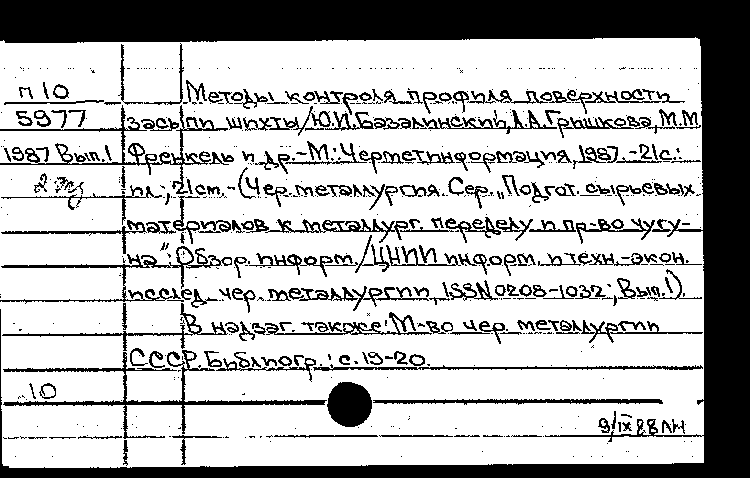 П 10
5977
1987 Вып.1
2 экз.
Методы контроля профиля поверхности
засыпи шихты/Ю.И.Базалинский, Л.А.Гришкова, М.М.
Френкель и др.-М.:Черметинформация, 1987.-21с.:
ил.; 21см.-(Чер. металлургия. Сер. „Подгот. сырьевых
материалов к металлург. переделу и пр-во чугу-
на": Обзор. информ./ЦНИИ информ. и техн.-экон.
исслед. чер. металлургии, ISSN 0208-1032; Вып.1).
В надзаг. также: М-во чер. металлургии
СССР. Библиогр.: с.19-20.
10
9/IX 88 ЛН